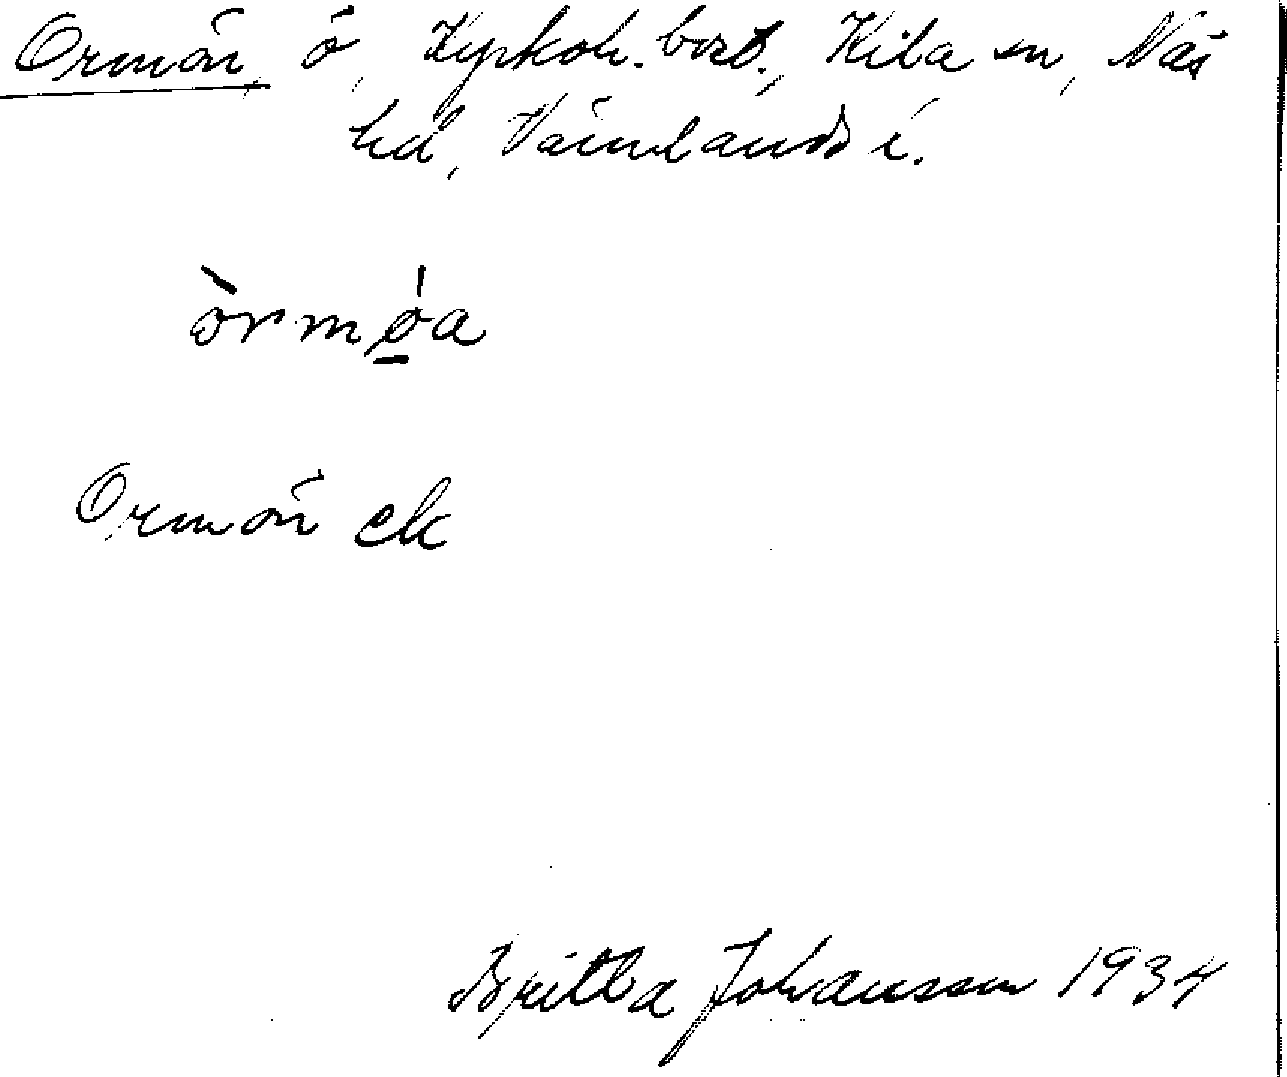 Ormön, ö, Kyrkoh.bost., Kila sn, Näs
hd, Värmlands l.
òrmǿ̱a
Ormön ek
Britta Johansson 1934